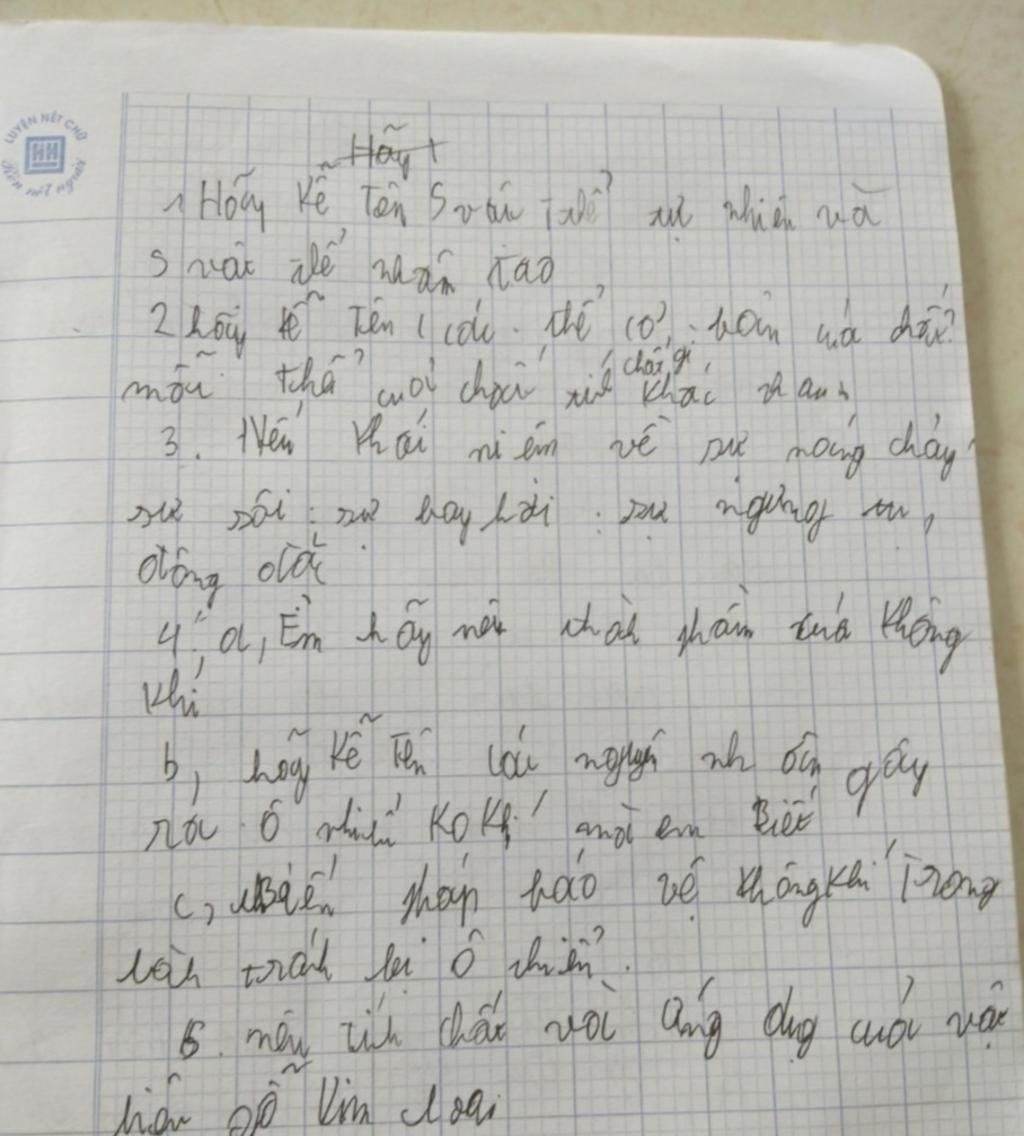 LUYỆN NÉT CHỮ
Rèn nết người
Hãy
1 Hãy kể tên 5 vật thể tự nhiên và
5 vật thể nhân tạo
2 hãy kể tên các thể cơ bản của chất?
mỗi thể của chất
chất gì
khác nhau
3. Nêu khái niệm về sự nóng chảy
sự sôi: sự bay hơi: sự ngưng tụ,
đông đặc
4: a, Em hãy nêu thành phần của không
khí
b, hãy kể tên các nguyên nhân gây
ra ô nhiễm Ko Khí mà em Biết
c, Biện pháp bảo vệ không khí Trong
lành tránh bị ô nhiễm.
5. nêu tính chất và ứng dụng của vật
liệu gỗ kim loại